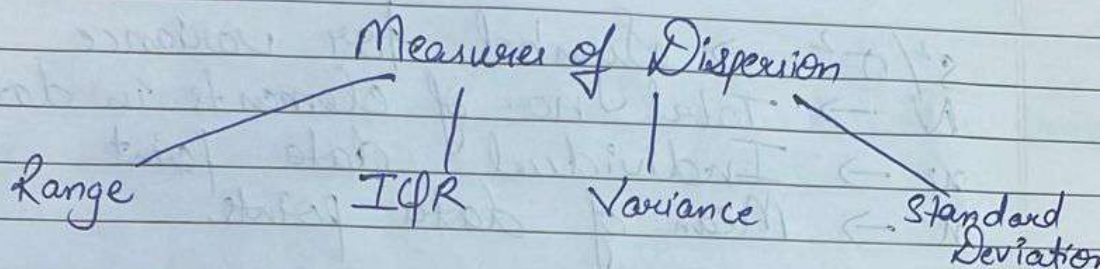 Measures of Dispersion
Range IQR Variance Standard
Deviation